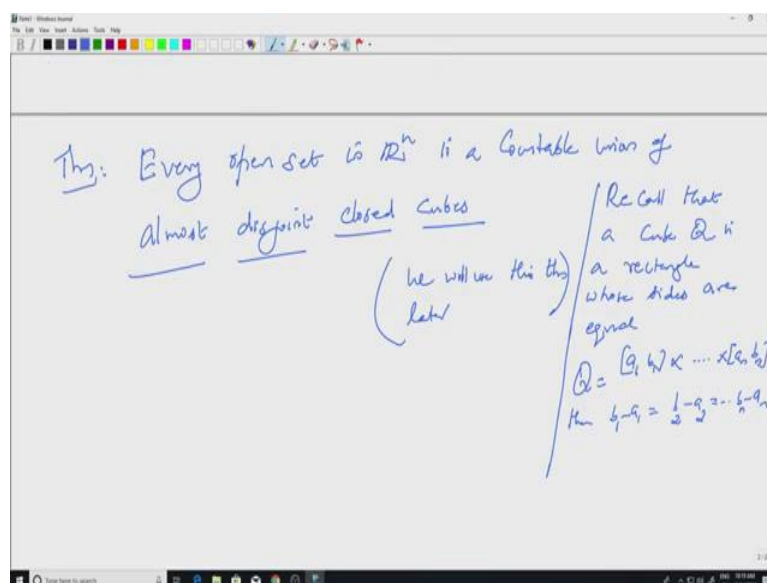 Note1 - Windows Journal
File Edit View Insert Actions Tools Help
Thm: Every open set in ℝⁿ is a Countable union of
almost disjoint closed Cubes
(we will use this thm
later)
Recall that
a Cube Q is
a rectangle
whose sides are
equal
Q = [a₁ b₁] × .... × [aₙ bₙ]
then b₁-a₁ = b₂-a₂ = .. bₙ-aₙ
Type here to search